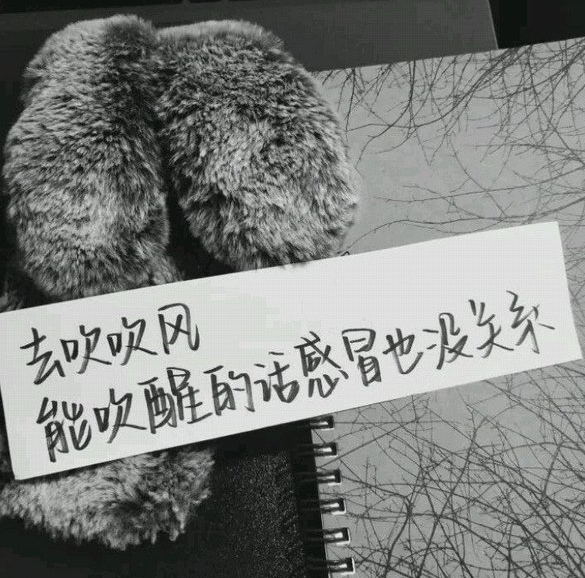 去吹吹风
能吹醒的话感冒也没关系